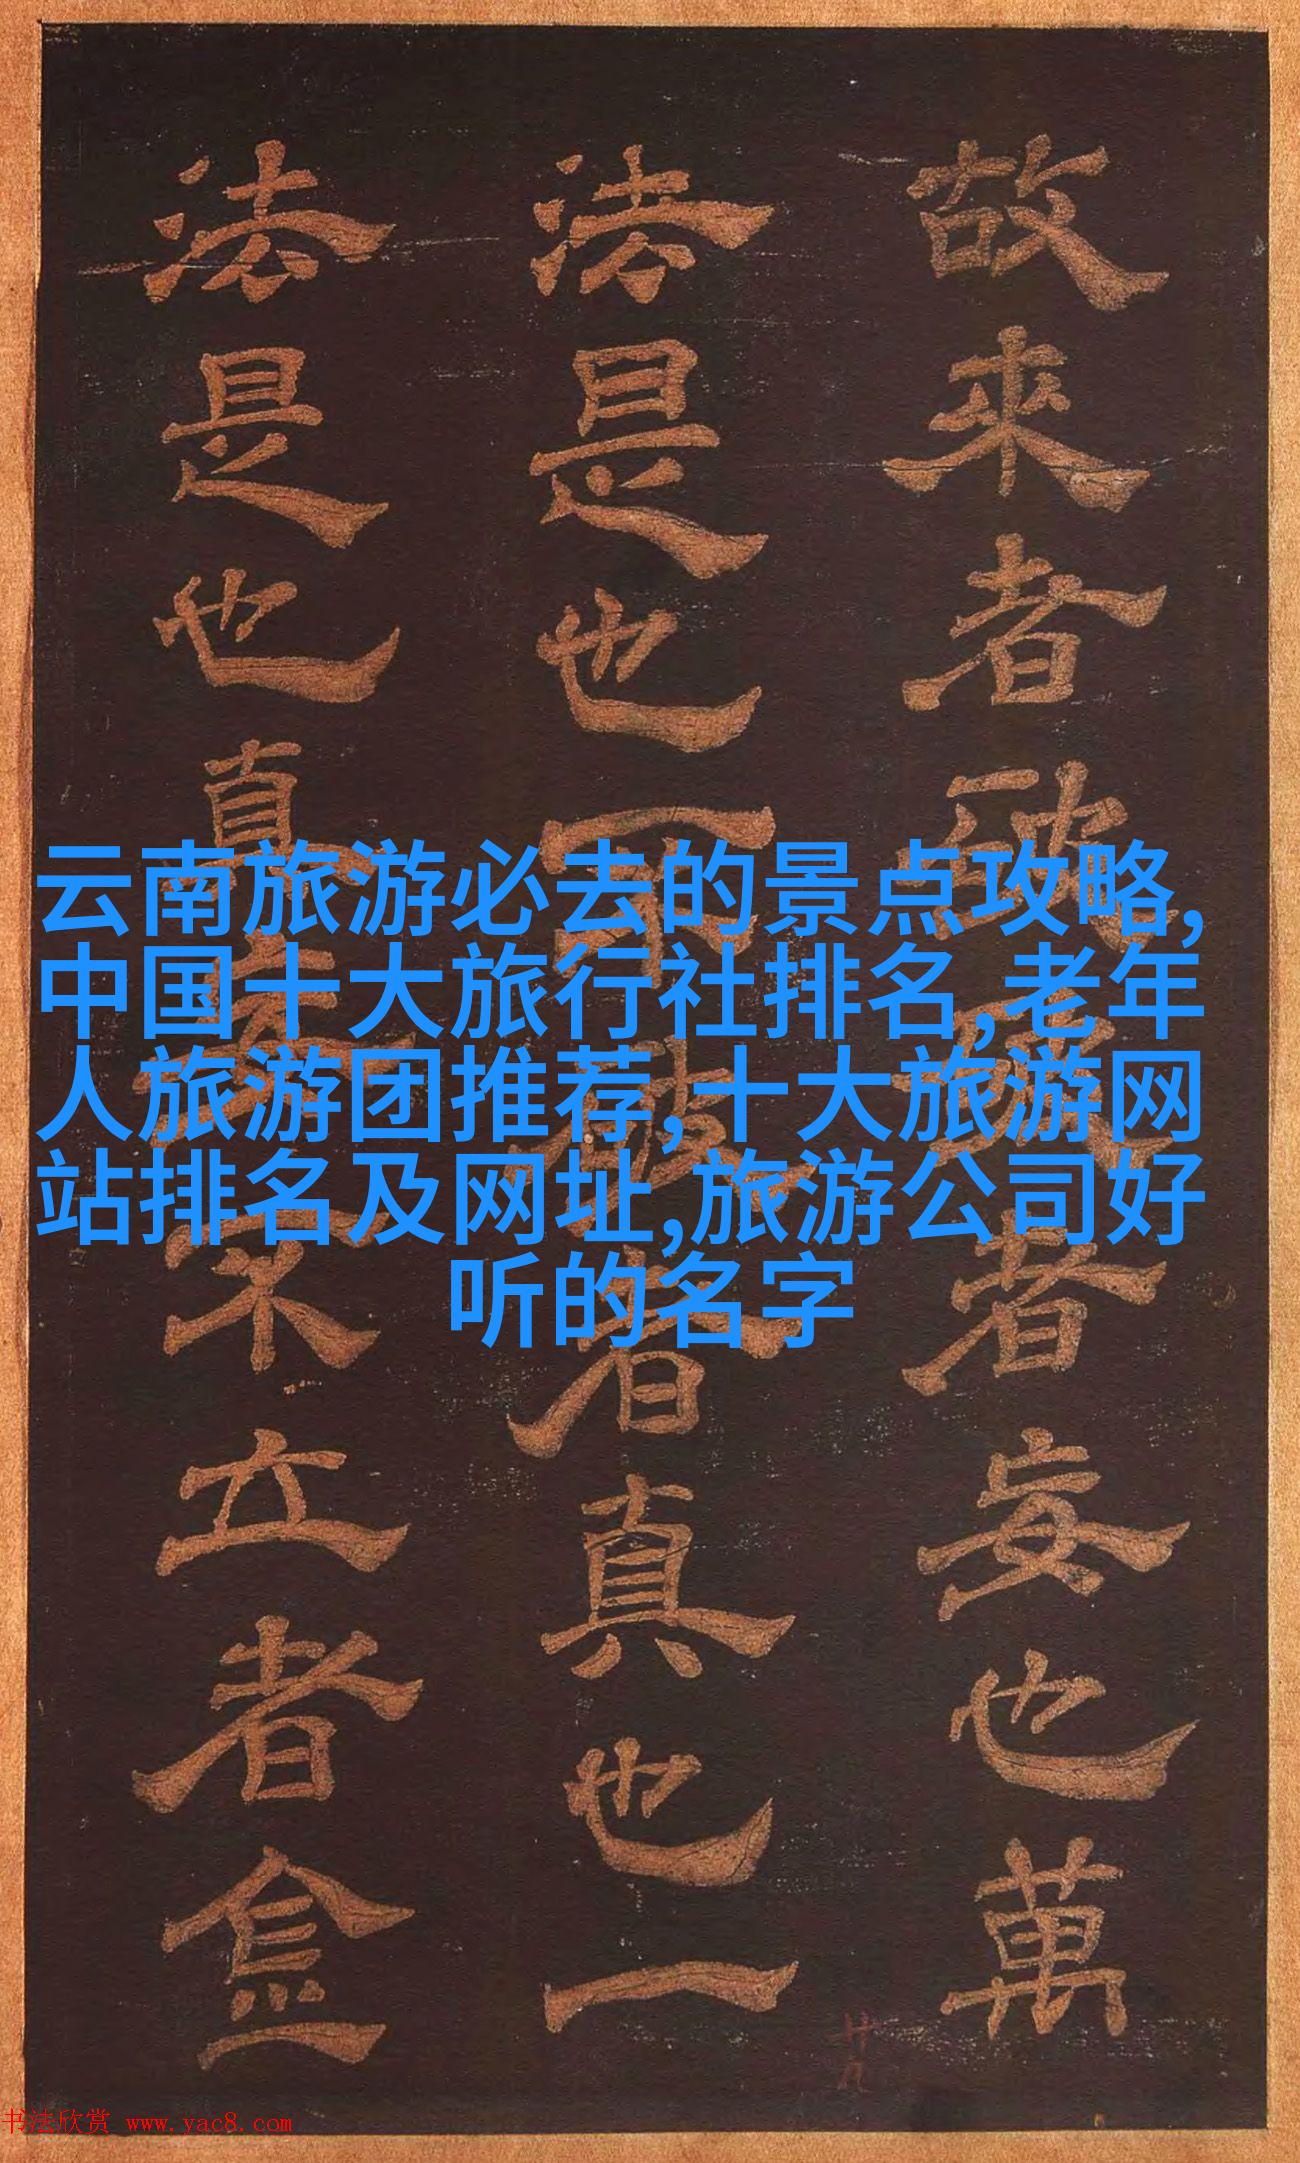 故來者者妄也萬
法是也者真也一
法是也真不立者
云南旅游必去的景点攻略,
中国十大旅行社排名,老年
人旅游团推荐,十大旅游网
站排名及网址,旅游公司好
听的名字
书法欣赏 www.yac8.com